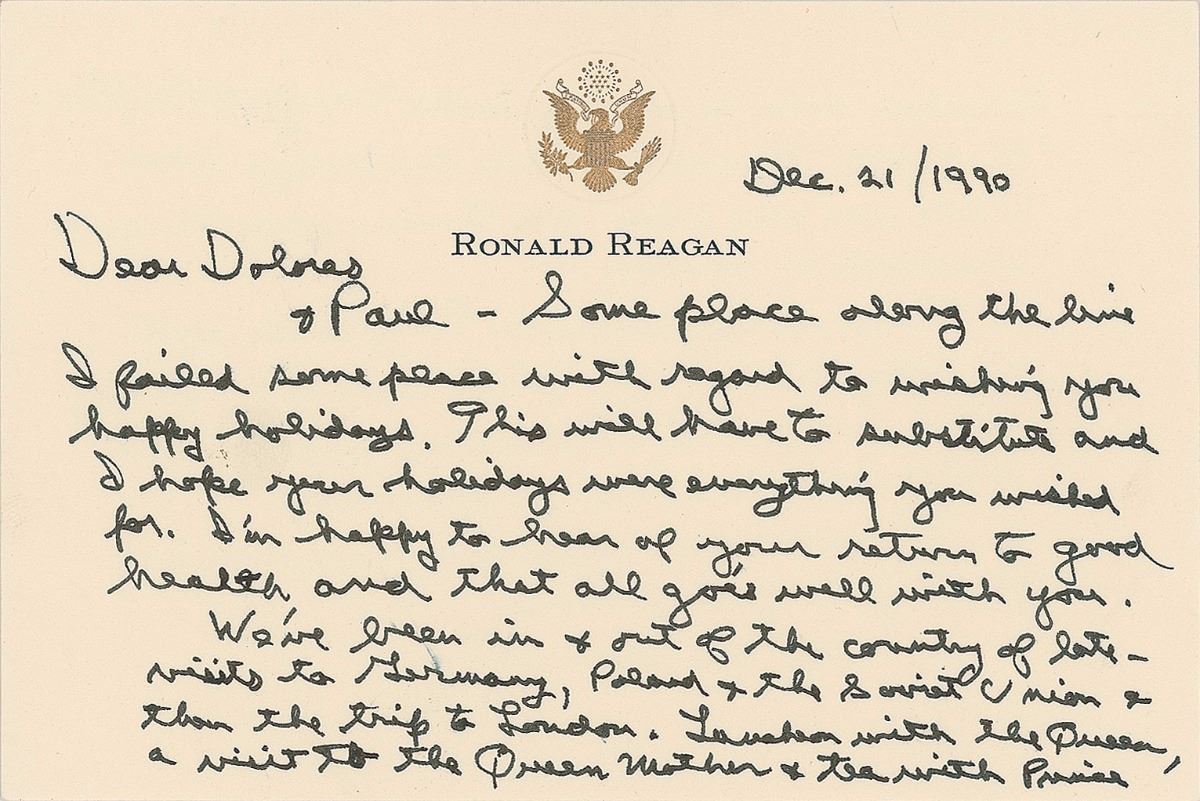 Dec. 21/1990
RONALD REAGAN
Dear Dolores
& Paul – Some place along the line
I failed some place with regard to wishing you
happy holidays. This will have to substitute and
I hope your holidays were everything you wished
for. I'm happy to hear of your return to good
health and that all goes well with you.
We've been in & out of the country of late –
visits to Germany, Poland & the Soviet Union &
then the trip to London. Luncheon with the Queen,
a visit to the Queen Mother & tea with Prince